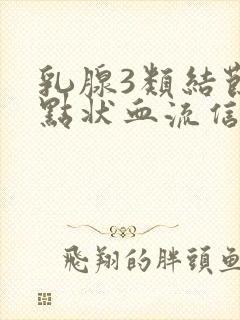 乳腺3類結節
點狀血流信
飛翔的胖頭魚